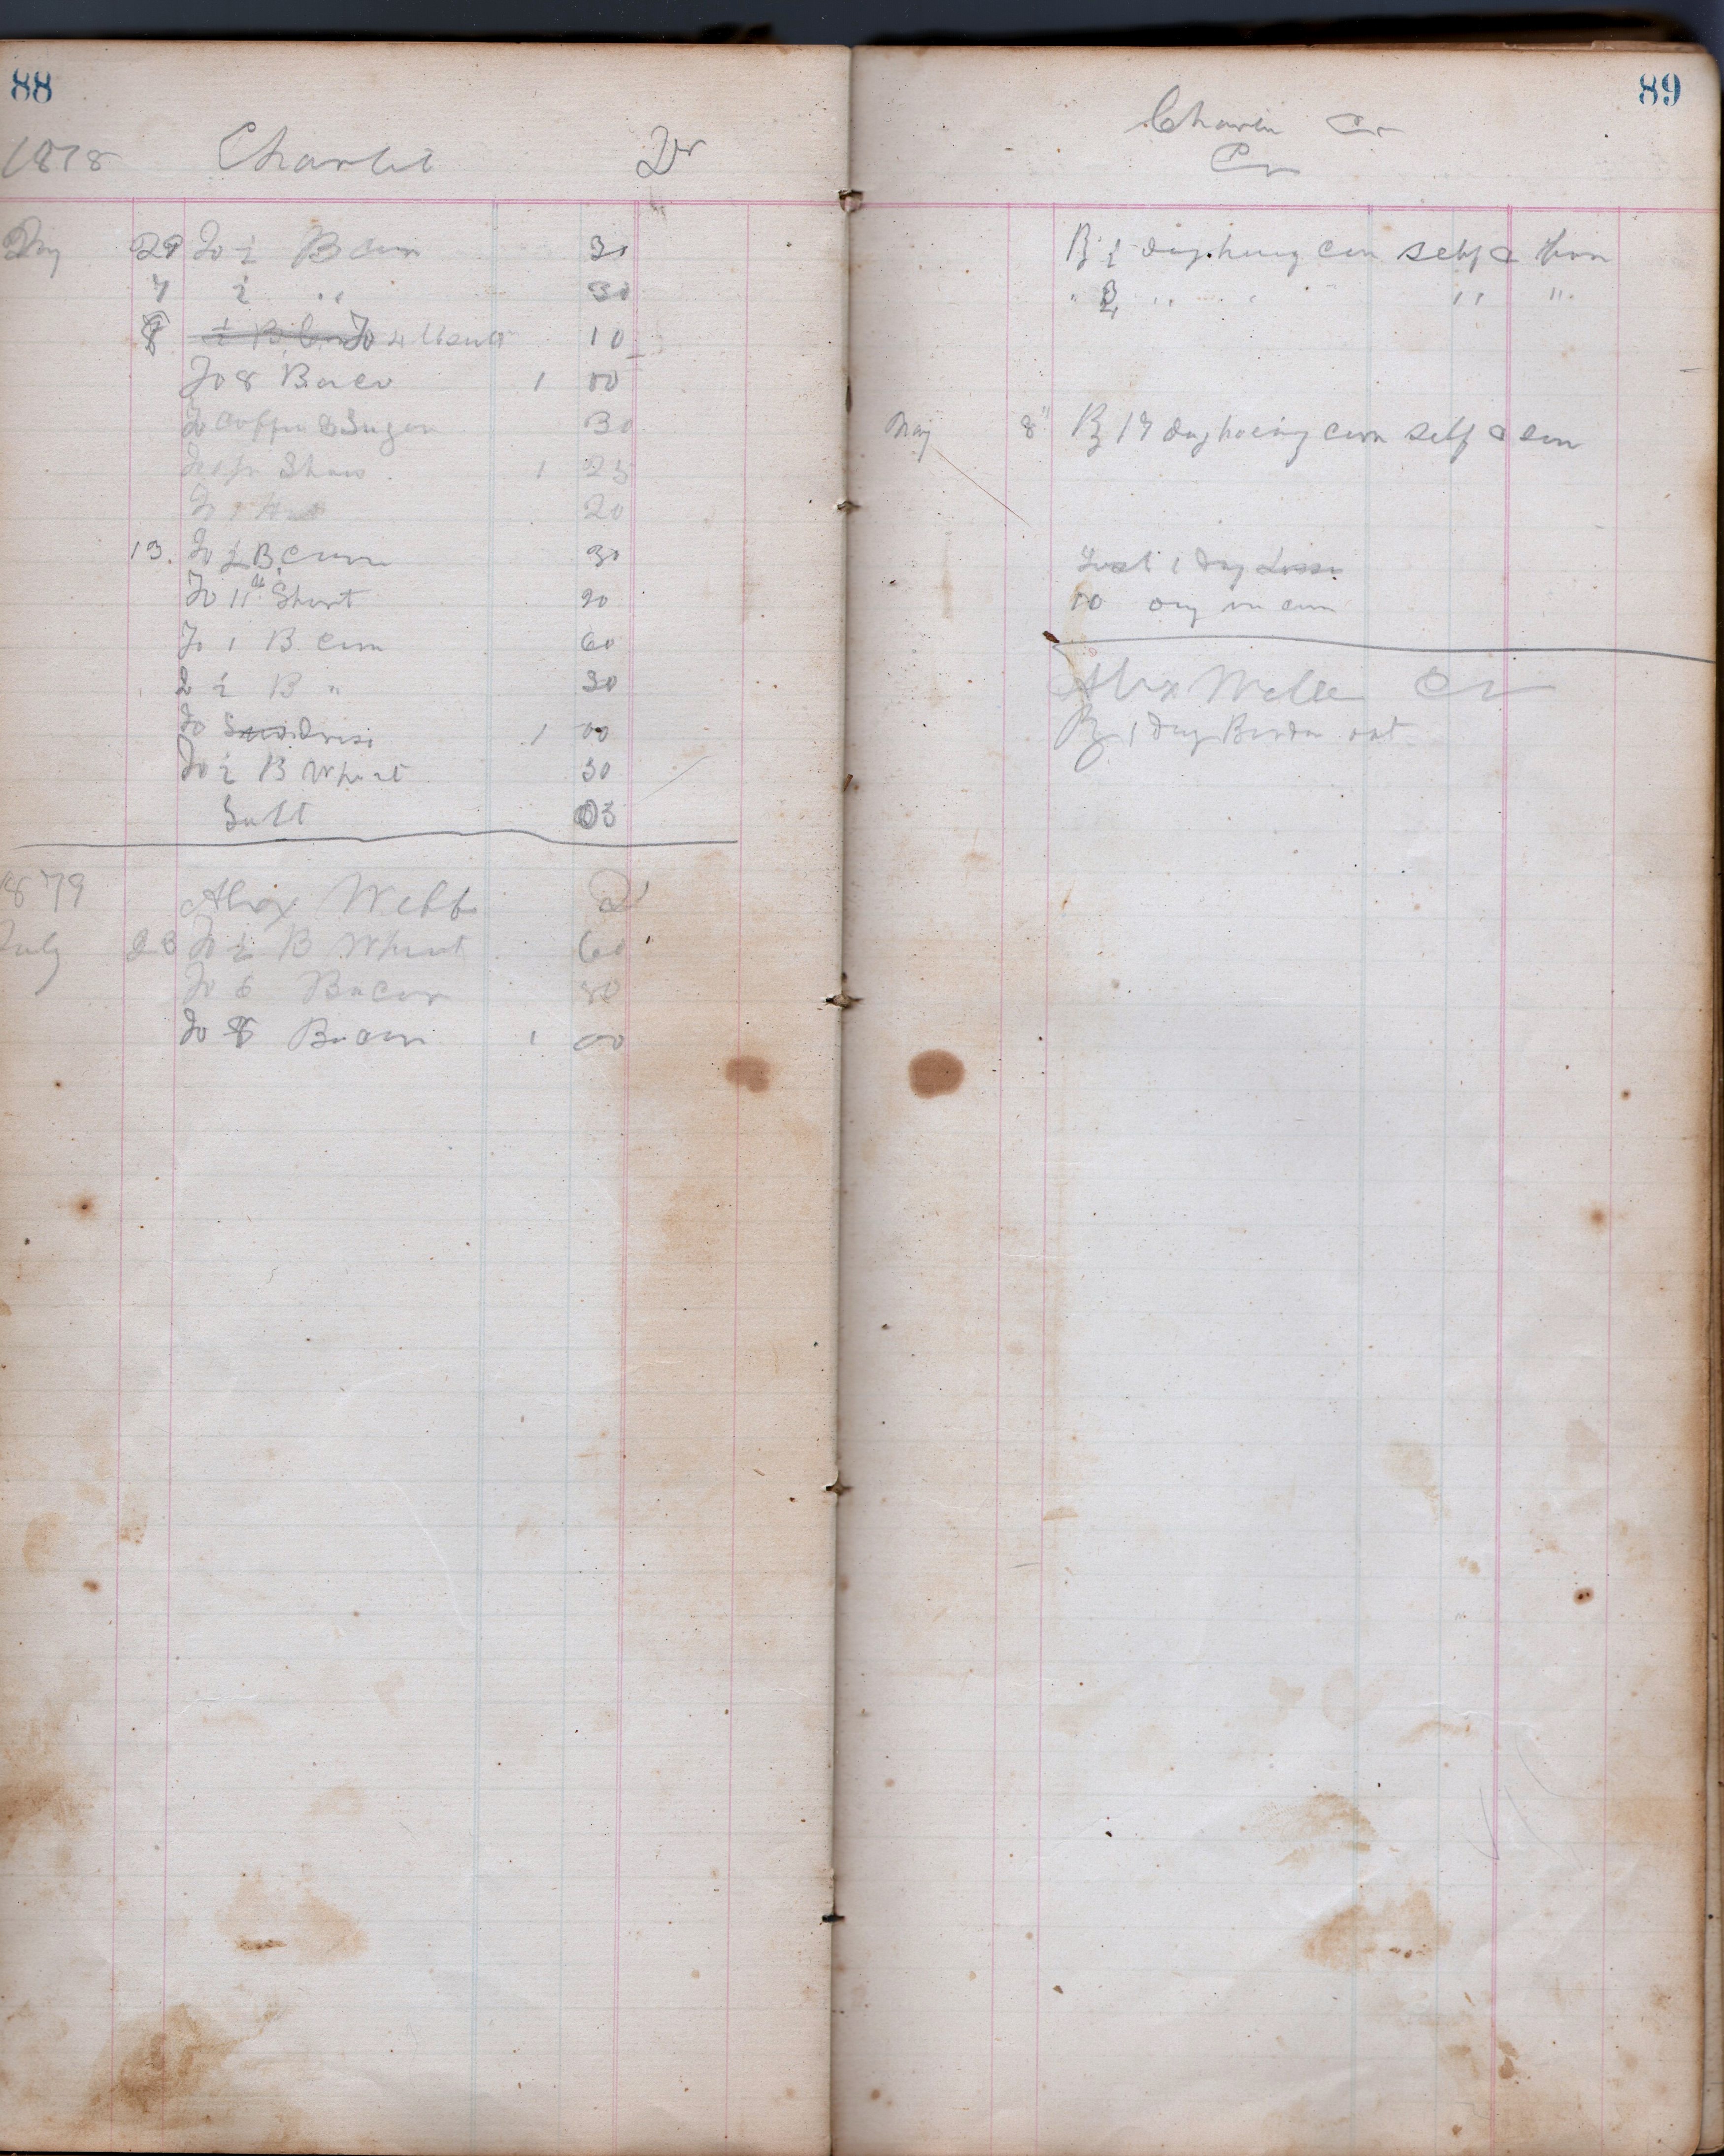 88
1878 Charlie Dr
May 29 To ½ B Corn 30
7 ½ " 30
8 To 4 10
To 8 Bacon 1 00
To Coffee & Sugar 30
To 1 pr Shoes 1 25
To 1 20
13. To ½ B. Corn 30
To 11 lb Short 20
To 1 B Corn 60
2 ½ B " 30
To 1 00
To ½ B Wheat 30
Salt 05
1879 Alex Webb Dr
July 23 To ½ B Wheat 60
To 6 Bacon 80
To 8 Bacon 1 00
89
Charlie Cr
Cr
By ½ day corn self &
" " " " "
May 8" By 17 day hoeing corn self & son
Lost 1 day
10 day in corn
Alex Webb Cr
By 1 day oat